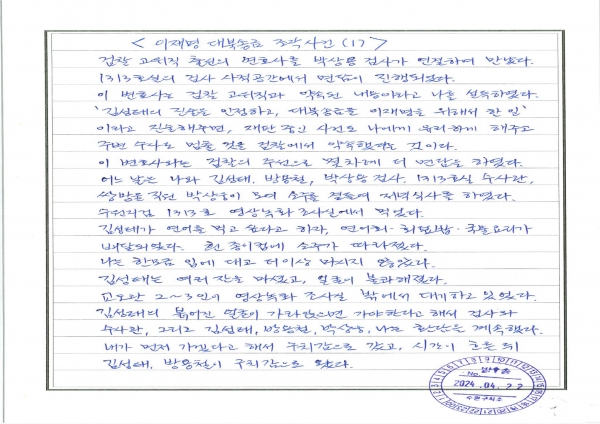 < 이재명 대북송금 조작사건 (1) >
검찰 고위직 출신의 변호사를 박상용 검사가 연결하여 만났다.
1313호실의 검사 사적공간에서 면담이 진행되었다.
이 변호사는 검찰 고위직과 약속된 내용이라고 나를 설득하였다.
'김성태의 진술을 인정하고, 대북송금을 이재명을 위해서 한 일'
이라고 진술해주면, 재판 중인 사건도 나에게 유리하게 해주고
주변 수사도 멈출 것을 검찰에서 약속했다는 것이다.
이 변호사와는 검찰의 주선으로 몇차례 더 면담을 하였다.
어느 날은 나와 김성태, 방용철, 박상용 검사, 1313호실 수사관,
쌍방울 직원 박상웅이 모여 소주를 곁들여 저녁식사를 하였다.
수원지검 1313호 영상녹화 조사실에서 먹었다.
김성태가 연어를 먹고 싶다고 하자, 연어회·회덮밥·국물요리가
배달되었다. 흰 종이컵에 소주가 따라졌다.
나는 한모금 입에 대고 더이상 마시지 않았다.
김성태는 여러 잔을 마셨고, 얼굴이 불콰해졌다.
교도관 2~3인이 영상녹화 조사실 밖에서 대기하고 있었다.
김성태의 붉어진 얼굴이 가라앉으면 가야한다고 해서 검사와
수사관, 그리고 김성태, 방용철, 박상웅, 나는 환담은 계속했다.
내가 먼저 가겠다고 해서 구치감으로 갔고, 시간이 흐른 뒤
김성태, 방용철이 구치감으로 왔다.
No.
2024.04.22
수원구치소